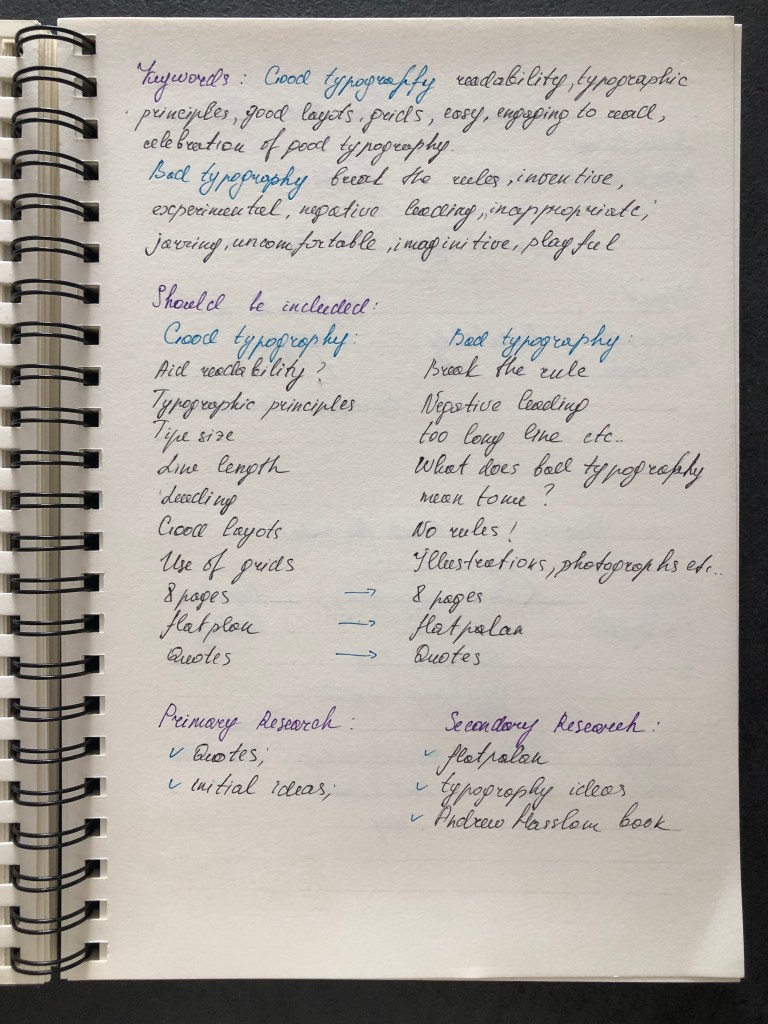 Keywords: Good typography readability, typographic
principles, good layots, grids, easy, engaging to read,
celebration of good typography.
Bad typography break the rules, inventive,
experimental, negative leading, inappropriate,
jarring, uncomfortable, imaginitive, playful
Should be included:
Good typography:
Aid readability?
Typographic principles
Type size
Line length
Leading
Good layots
Use of grids
8 pages →
flatplan →
Quotes →
Bad typography:
Break the rule
Negative leading
too long line etc..
What does bad typography
mean to me?
No rules!
Illustrations, photographs etc..
8 pages
flatpalan
Quotes
Primary Research:
✓ Quotes;
✓ initial ideas;
Secondary Research:
✓ flatpalan
✓ typography ideas
✓ Andrew Hasslam book